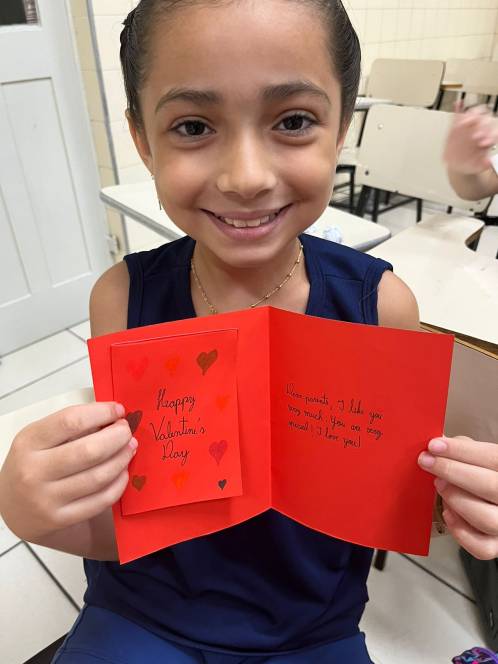 Heappy
Valentine's
Day
Dear parents, I like you
very much! You are very
nice! I love you!